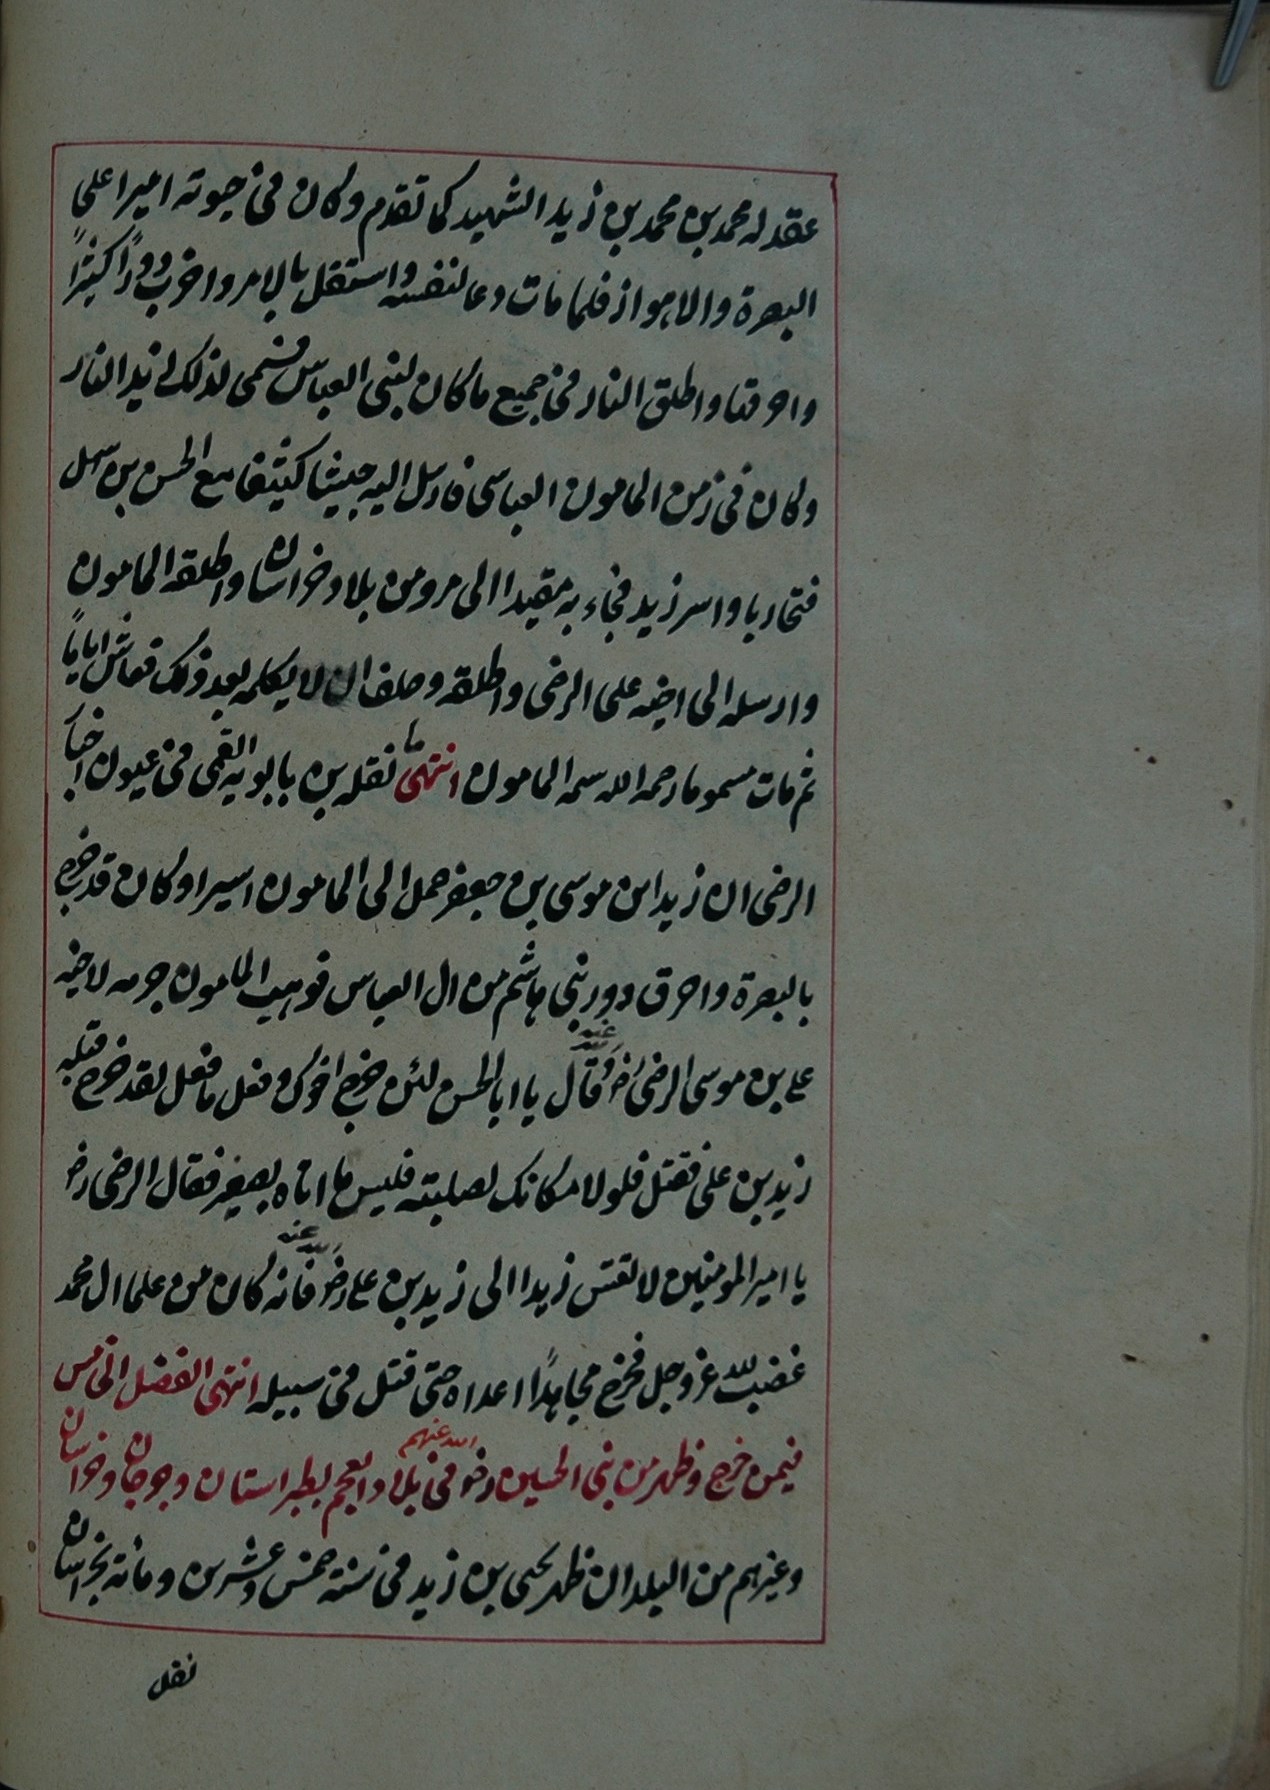 عقد له محمد بن محمد بن زيد الشهيد كما تقدم وكان في حيوته اميرا على
البصرة والاهواز فلما مات دعا لنفسه واستقل بالامر واخرب دورًا كثيرًا
واحرقها واطلق النار في جميع ما كان لبني العباس فسمى لذلك زيد النار
وكان في زمن المامون العباسي فارسل اليه جيشا كثيفا مع الحسن بن سهل
فتحاربا واسر زيد فجاء به مقيدا الى مرو من بلاد خراسان واطلقه المامون
وارسله الى اخيه على الرضى واطلقه وحلف ان لا يكلمه بعد ذلك فعاش اياما
ثم مات مسموما رحمه الله سمه المامون انتهى ما نقله بن بابويه القمى في عيون اخبار
الرضى ان زيد ابن موسى بن جعفر حمل الى المامون اسيرا وكان قد خرج
بالبصرة واحرق دور بني هاشم من ال العباس فوهب المامون جرمه لاخيه
على بن موسى الرضى رضى الله عنه وقال يا ابا الحسن لئن خرج اخوك وفعل ما فعل لقد خرج قبله
زيد بن على فقتل فلولا مكانك لصلبته فليس ما اتاه بصغير فقال الرضى رضو
يا امير المومنين لا تقس زيدا الى زيد بن على رضو الله عنه فانه كان من علما ال محمد
غضب لله عز وجل فخرج مجاهدًا اعداه حتى قتل في سبيله انتهى الفصل الخامس
فيمن خرج وظهر من بني الحسين رضو الله عنهم في بلاد العجم بطبراستان وجرجان وخراسان
وغيرهم من البلدان ظهر يحيى بن زيد في سنة خمس وعشرين ومائة بخراسان
نقل